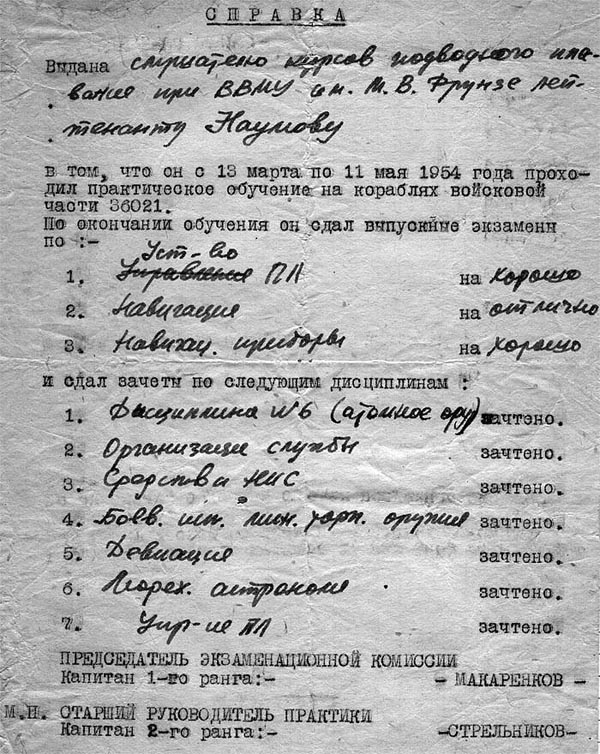 СПРАВКА
Выдана слушателю курсов подводного пла-
вания при ВВМУ им. М. В. Фрунзе лей-
тенанту Наумову
в том, что он с 13 марта по 11 мая 1954 года прохо-
дил практическое обучение на кораблях войсковой
части 36021.
По окончании обучения он сдал выпускные экзамены
по :-
Уст-во
1. Управление ПЛ на хорошо
2. Навигация на отлично
3. Навигац. приборы на хорошо
и сдал зачеты по следующим дисциплинам :
1. Дисциплина №6 (атомное ору) зачтено.
2. Организация службы зачтено.
3. Средства зачтено.
4. Боев. мин. торп. оружия зачтено.
5. Девиация зачтено.
6. Мореx. астрономия зачтено.
7. Упр-ие ПЛ зачтено.
ПРЕДСЕДАТЕЛЬ ЭКЗАМЕНАЦИОННОЙ КОМИССИИ
Капитан 1-го ранга:- - МАКАРЕНКОВ -
М.П. СТАРШИЙ РУКОВОДИТЕЛЬ ПРАКТИКИ
Капитан 2-го ранга:- -СТРЕЛЬНИКОВ-